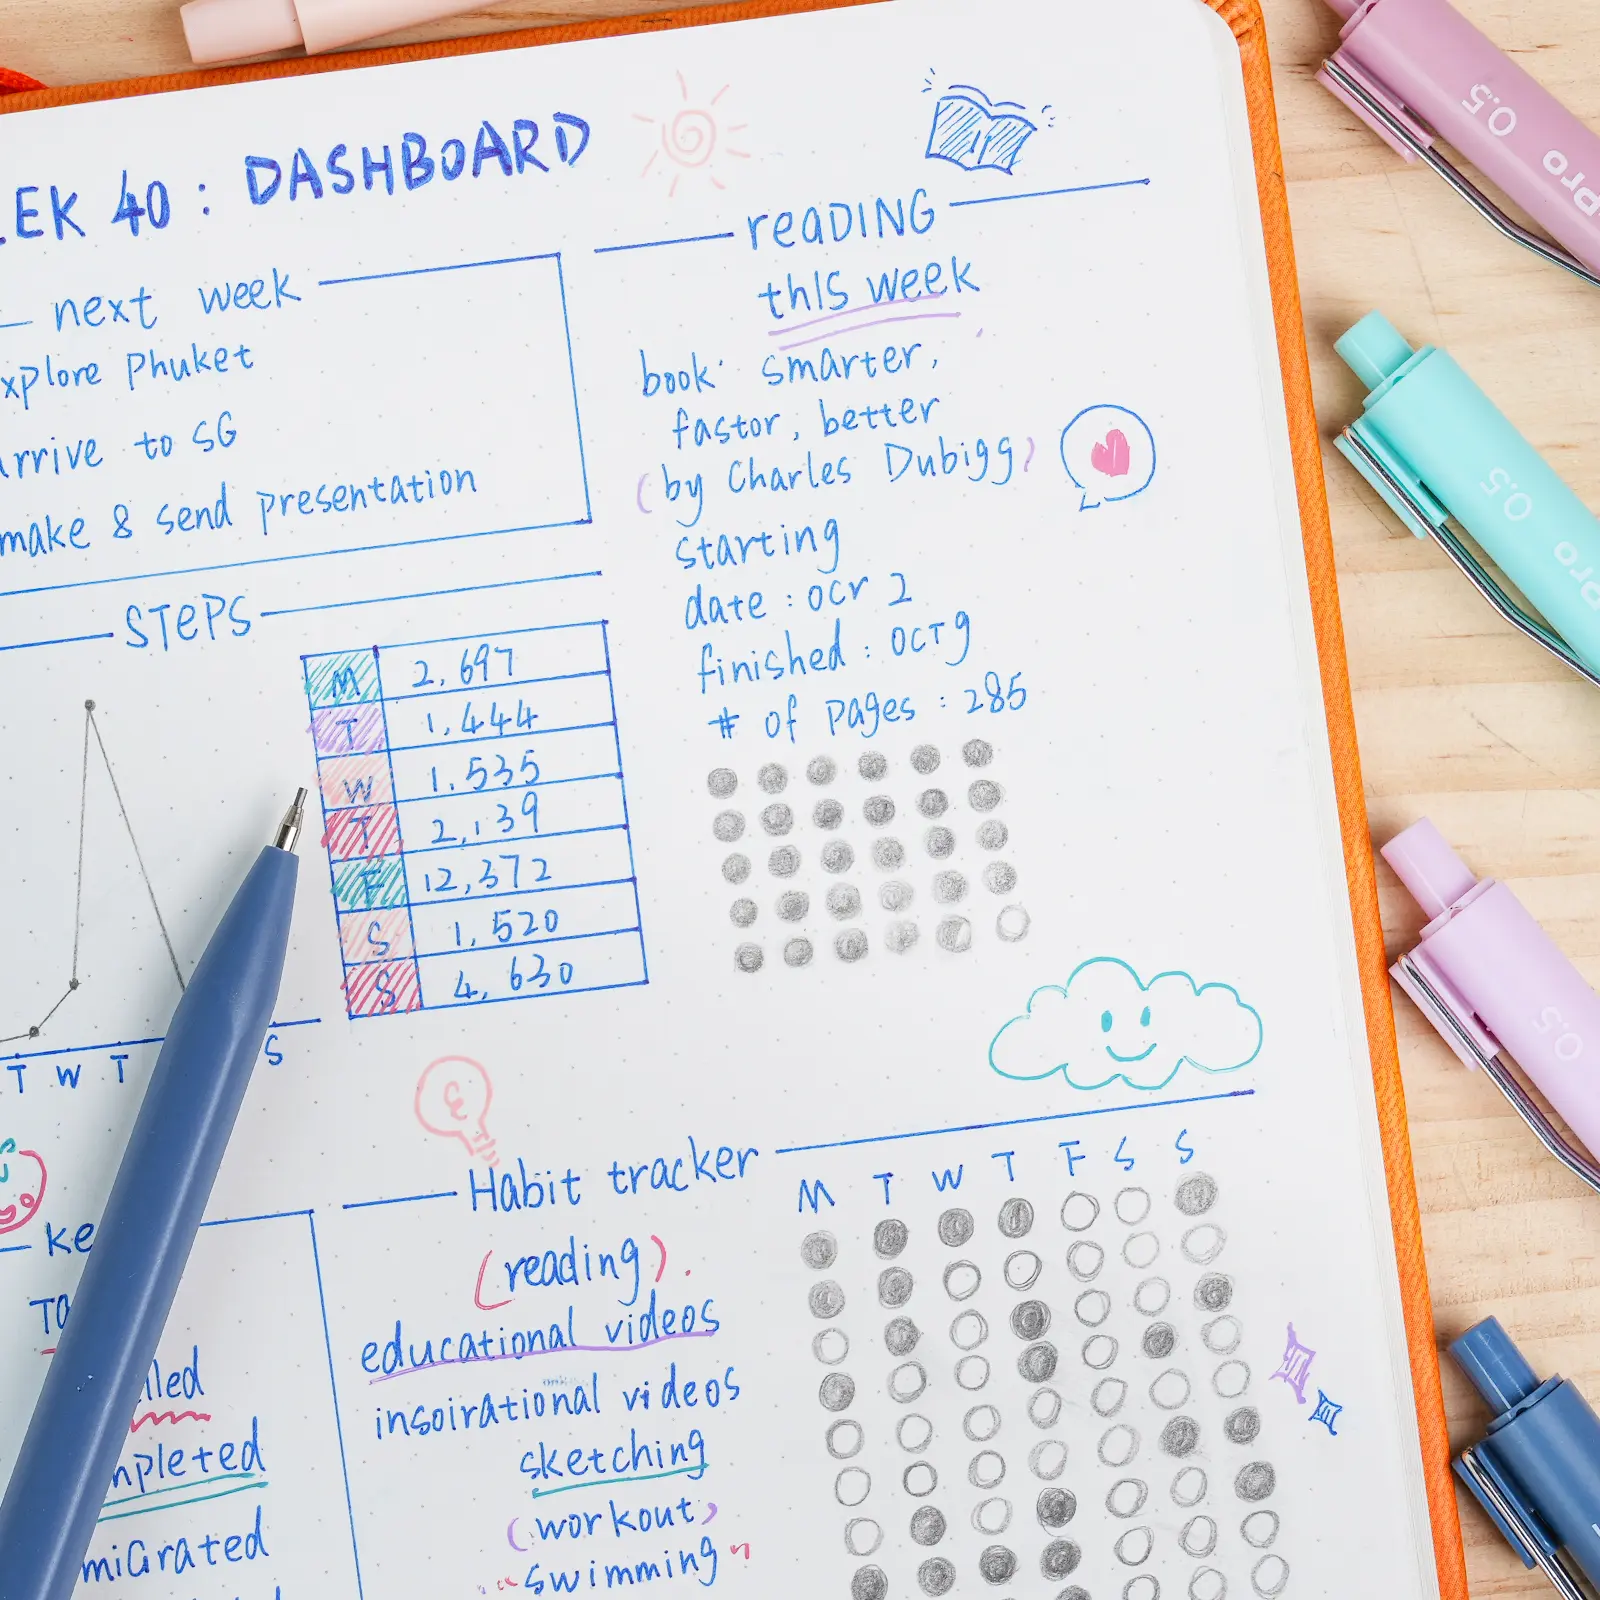 EK 40 : DASHBOARD
next week
xplore Phuket
rrive to SG
make & send presentation
reADING
thIS week
book: smarter,
fastor, better
(by Charles Dubigg)
starting
date : ocr 2
finished : OCT 9
# of pages : 285
STEPS
M 2,697
T 1,444
W 1,535
T 2,139
F 12,372
S 1,520
S 4,630
T W T S
Habit tracker
M T W T F S S
(reading).
educational videos
insoirational videos
sketching
(workout)
swimming
Ke
TO
lled
mpleted
miGrated
0.5
Pro
0.5
Pro
0.5